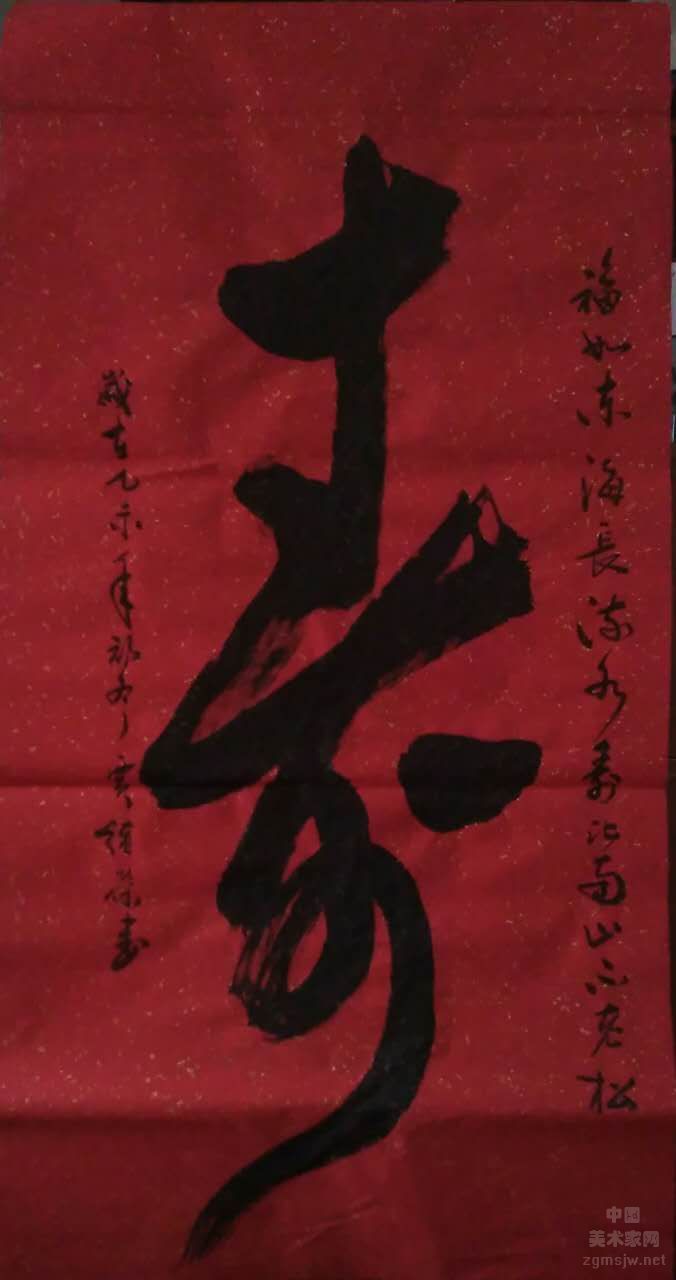 福如东海長流水寿比南山不老松
寿
岁在乙未年初冬
书
中国
美术家网
zgmsjw.net